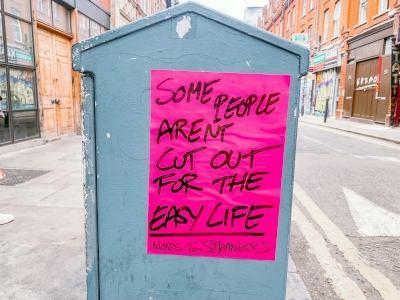 SOME
PEOPLE
ARENT
CUT OUT
FOR THE
EASY LIFE
NOTES TO STRANGERS